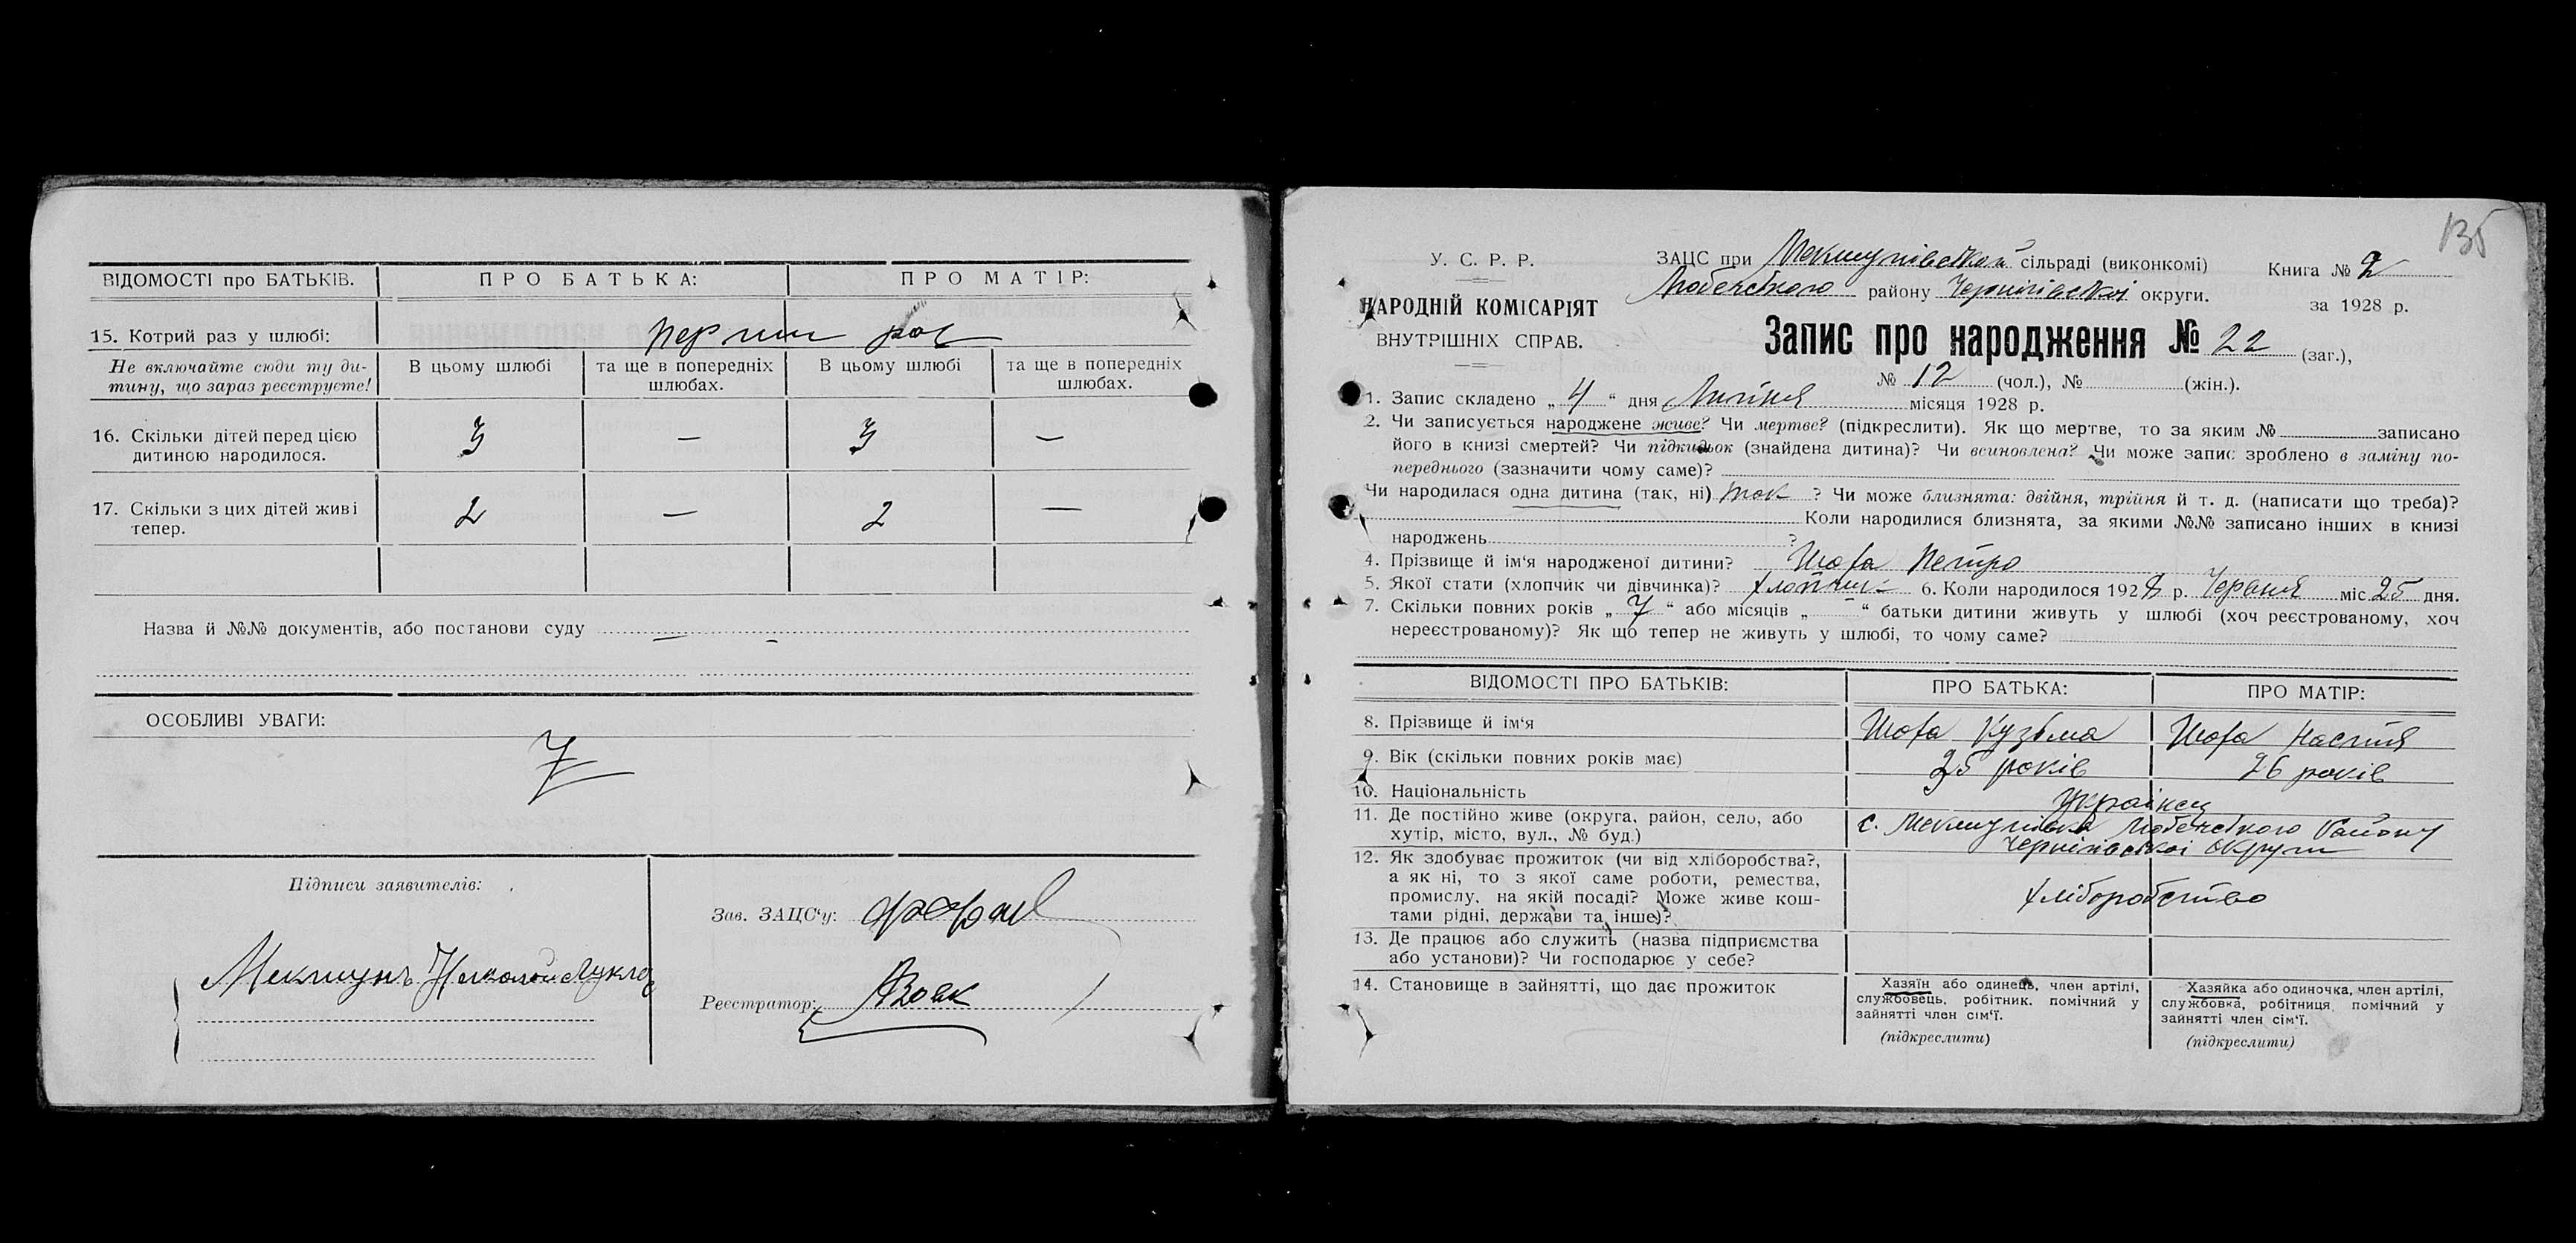 ВІДОМОСТІ про БАТЬКІВ.
ПРО БАТЬКА:
ПРО МАТІР:
15. Котрий раз у шлюбі:
перший раз
Не включайте сюди ту ди-
тину, що зараз реєструєте!
В цьому шлюбі
та ще в попередніх
шлюбах.
В цьому шлюбі
та ще в попередніх
шлюбах.
16. Скільки дітей перед цією
дитиною народилося.
3 — 3 —
17. Скільки з цих дітей живі
тепер.
2 — 2 —
Назва й №№ документів, або постанови суду — -
ОСОБЛИВІ УВАГИ:
Підписи заявителів:
Мекшунъ
Зав. ЗАЦС'у:
Реєстратор:
135
У. С. Р. Р.
НАРОДНІЙ КОМІСАРІЯТ
ВНУТРІШНІХ СПРАВ.
ЗАЦС при Мекшунівській сільраді (виконкомі)
Любецького району Чернігівської округи.
Книга № 2
за 1928 р.
Запис про народження № 22 (заг.),
№ 12 (чол.), № (жін.).
1. Запис складено „ 4 “ дня Липня місяця 1928 р.
2. Чи записується народжене живе? Чи мертве? (підкреслити). Як що мертве, то за яким № записано
його в книзі смертей? Чи підкидьок (знайдена дитина)? Чи всиновлена? Чи може запис зроблено в заміну по-
переднього (зазначити чому саме)?
Чи народилася одна дитина (так, ні) так ? Чи може близнята: двійня, трійня й т. д. (написати що треба)?
Коли народилися близнята, за якими №№ записано інших в книзі
народжень ?
4. Прізвище й ім'я народженої дитини? Шофа Петро
5. Якої стати (хлопчик чи дівчинка)? хлопчик 6. Коли народилося 1928 р. Червня міс 25 дня.
7. Скільки повних років „ 7 “ або місяців „ – “ батьки дитини живуть у шлюбі (хоч реєстрованому, хоч
нереєстрованому)? Як що тепер не живуть у шлюбі, то чому саме?
ВІДОМОСТІ ПРО БАТЬКІВ:
ПРО БАТЬКА:
ПРО МАТІР:
8. Прізвище й ім'я
Шофа Кузьма
Шофа Настя
9. Вік (скільки повних років має)
25 років
26 років
10. Національність
Українец
11. Де постійно живе (округа, район, село, або
хутір, місто, вул., № буд.)
с. Мекшунівка Любецького Району
Чернігівської округи
12. Як здобуває прожиток (чи від хліборобства?,
а як ні, то з якої саме роботи, ремества,
промислу, на якій посаді? Може живе кош-
тами рідні, держави та інше)?
хліборобство
13. Де працює або служить (назва підприємства
або установи)? Чи господарює у себе?
14. Становище в зайнятті, що дає прожиток
Хазяїн або одинець, член артілі,
службовець, робітник, помічний у
зайнятті член сім'ї.
(підкреслити)
Хазяйка або одиночка, член артілі,
службовка, робітниця, помічний у
зайнятті член сім'ї.
(підкреслити)